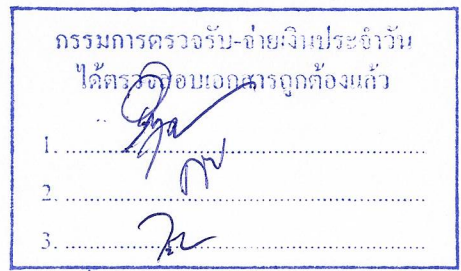 กรรมการตรวจรับ-จ่ายเงินประจำวัน
ได้ตรวจสอบเอกสารถูกต้องแล้ว
1. ........................................................
2. ........................................................
3. ........................................................